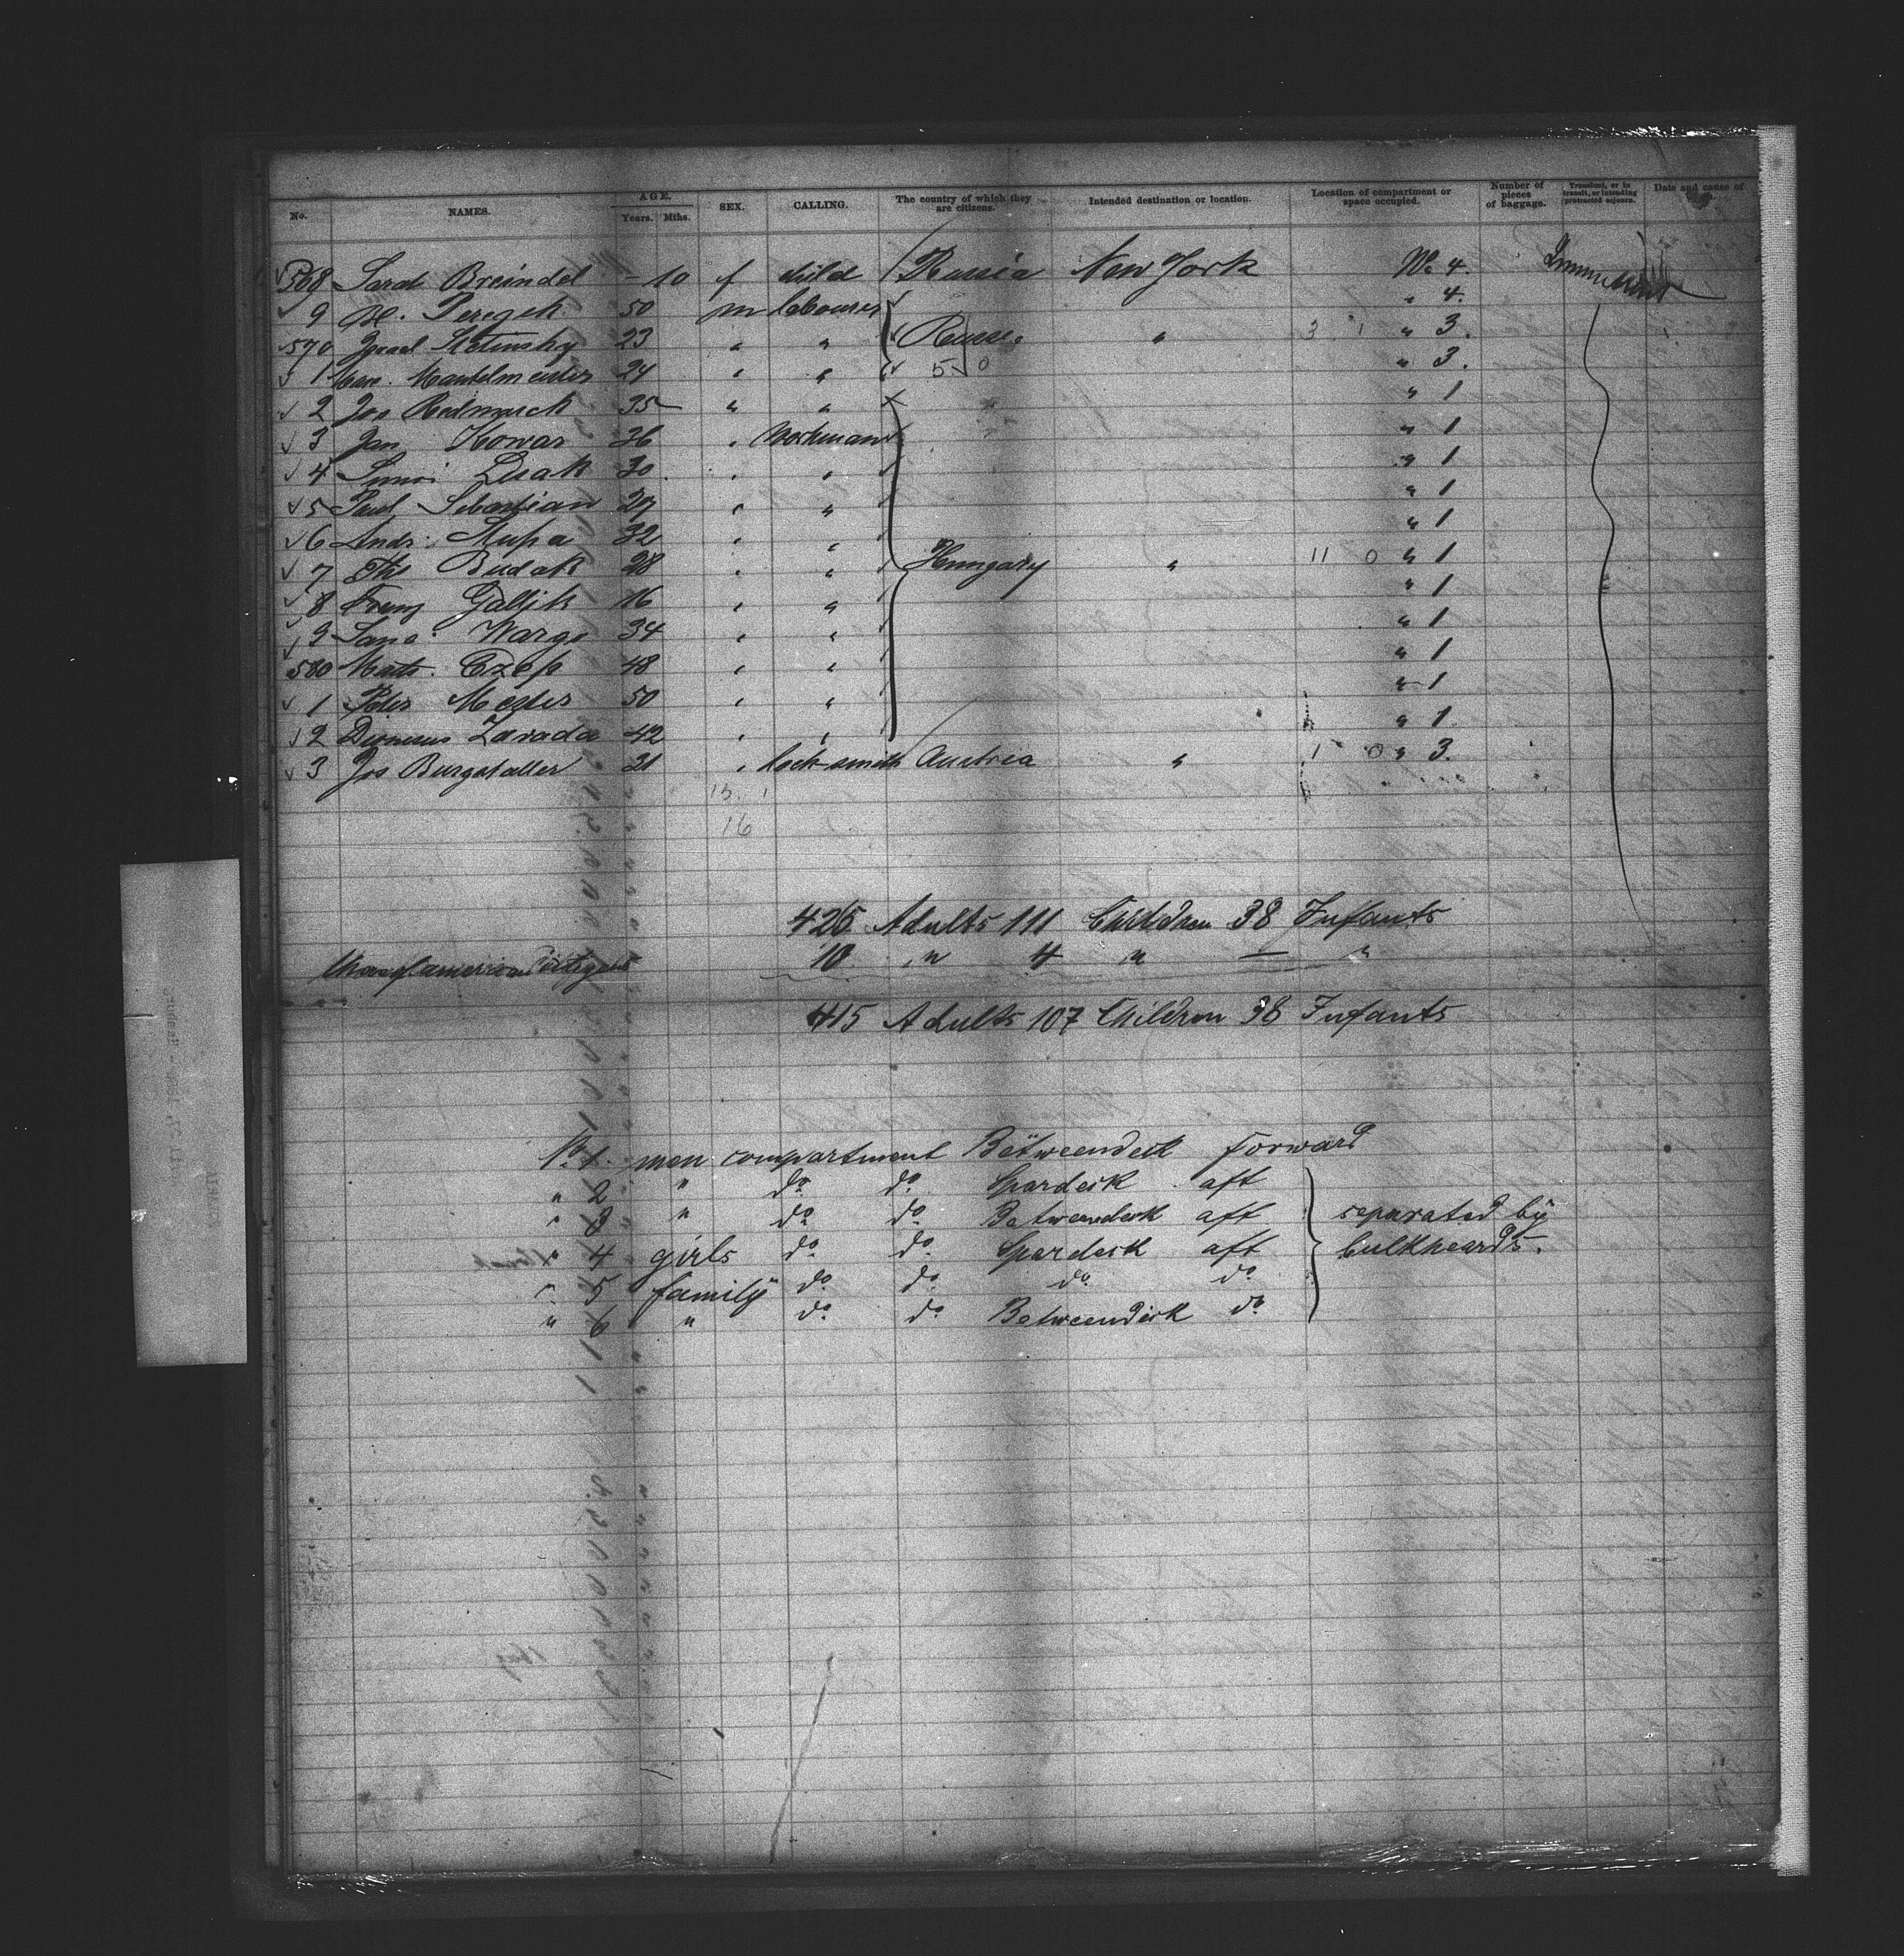 No. NAMES. AGE. Years. Mths. SEX. CALLING. The country of which they are citizens. Intended destination or location. Location of compartment or space occupied. Number of pieces of baggage. Transient, or in transit, or intending protracted sojourn. Date and cause of
568 Sarah Breindel - 10 f child Russia New York No 4.
9 Peregek 50 m labourer " 4.
570 Israel Stetinsky 23 " " Russia " 3 1 " 3.
1 Mantelmeister 24 " " 5 0 " 3.
2 Jos Redmuck 35 " " " 1
3 Jan Kowar 36 " Workman " 1
4 Lesak 30 " " " 1
5 Paul Sebastian 27 " " " 1
6 Andr. Mupa 32 " " " 1
7 Budak 28 " " Hungary " 11 0 " 1
8 Franz Galljk 16 " " " 1
9 Wargo 34 " " " 1
580 Math. Czap 48 " " " 1
1 Peter Mester 50 " " " 1
2 Dionesus Zavada 42 " " " 1.
3 Jos Burgstaller 21 " locksmith Austria " 1 0 " 3.
15. 1
16
425 Adults 111 Children 38 Infants
10 " 4 " — "
415 Adults 107 Children 38 Infants
No. 1. men compartment Betweendeck forward
" 2 " do. do. Spardeck aft
" 3 " do. do. Betweendeck aft separated by
" 4 girls do. do. Spardeck aft bulkheards.
" 5 family do. do. do. do.
" 6 " do. do. Betweendeck do.